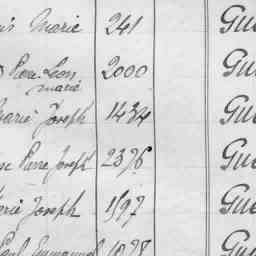 Marie 241 Gu
Pierre Leon 2000 Gu
marie
Marie Joseph 1434 Gue
Pierre Joseph 2376 Gue
Marie Joseph 1597 Gue
Paul Emmanuel 1078 Gu